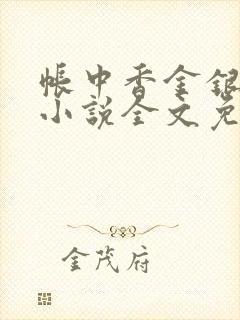 帳中香金銀
小說全文免
金茂府